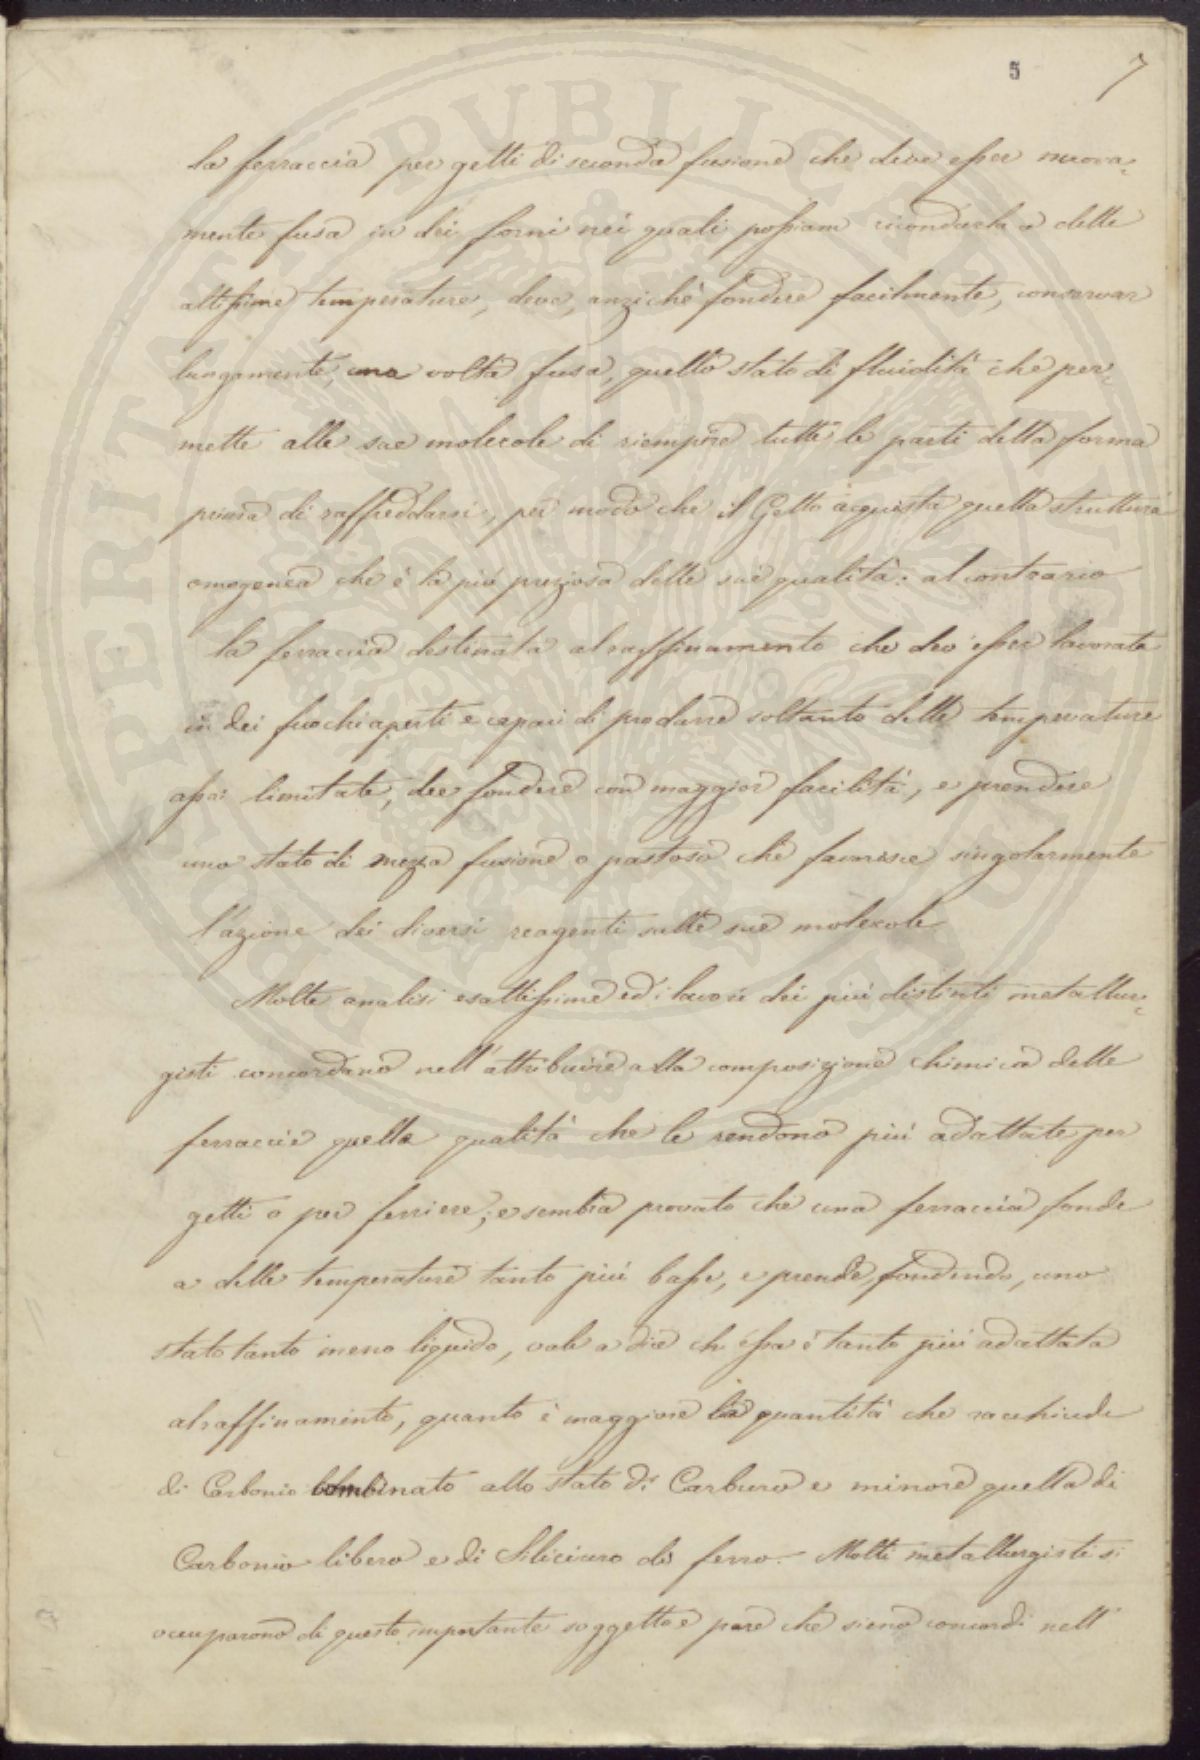 5 7
la ferraccia per getti di seconda fusione che deve esser nuova=
mente fusa in dei forni nei quali possiam ricondurla a delle
altissime temperature, deve, anziché fondere facilmente, conservar
lungamente, una volta fusa, quello stato di fluidità che per=
mette alle sue molecole di riempire tutte le parti della forma
prima di raffreddarsi, per modo che il Getto acquista quella struttura
omogenea che è la più preziosa delle sue qualità: al contrario
la ferraccia destinata al raffinamento che dev'esser lavorata
in dei fuochi aperti e capaci di produrre soltanto delle temperature
assai limitate, dee fondere con maggior facilità, e prendere
uno stato di mezza fusione o pastoso che favorisce singolarmente
l'azione dei diversi reagenti sulle sue molecole
Molte analisi esattissime ed i lavori dei più distinti metallur=
gisti concordano nell'attribuire alla composizione chimica delle
ferraccie quelle qualità che le rendono più adattate per
getti o per ferriere; e sembra provato che una ferraccia fonde
a delle temperature tanto più basse, e prende, fondendo, uno
stato tanto meno liquido, vale a dire ch'essa è tanto più adattata
al raffinamento, quanto è maggiore la quantità che racchiude
di Carbonio combinato allo stato di Carburo e minore quella di
Carbonio libero e di Siliciuro di ferro. - Molti metallurgisti si
occuparono di questo importante soggetto e pare che sieno concordi nell'
PUBLICAE